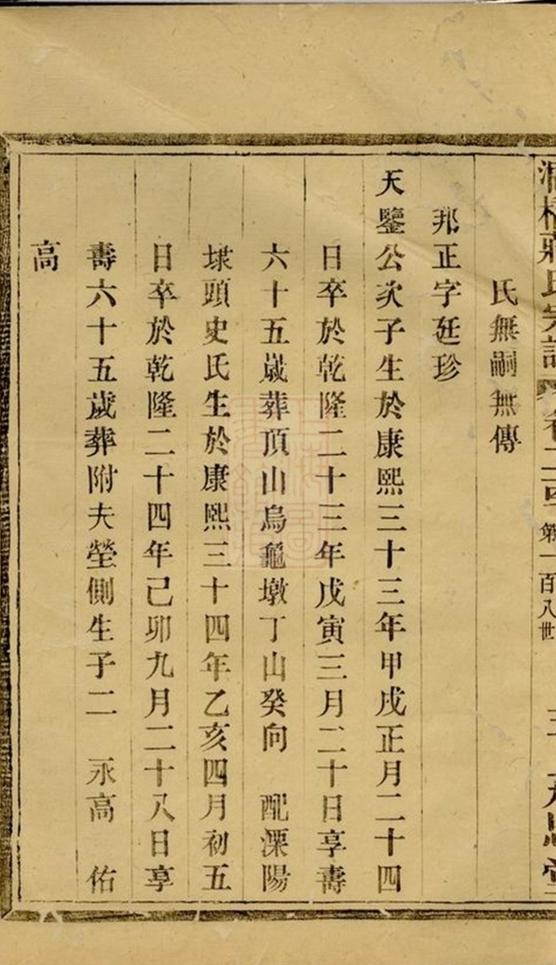 蔣氏宗譜
第一百八世
氏無嗣無傳
邦正字廷珍
天鑒公次子生於康熙三十三年甲戌正月二十四
日卒於乾隆二十三年戊寅三月二十日享壽
六十五歲葬頂山烏龜墩丁山癸向 配溧陽
埭頭史氏生於康熙三十四年乙亥四月初五
日卒於乾隆二十四年己卯九月二十八日享
壽六十五歲葬附夫塋側生子二 永高 佑
高